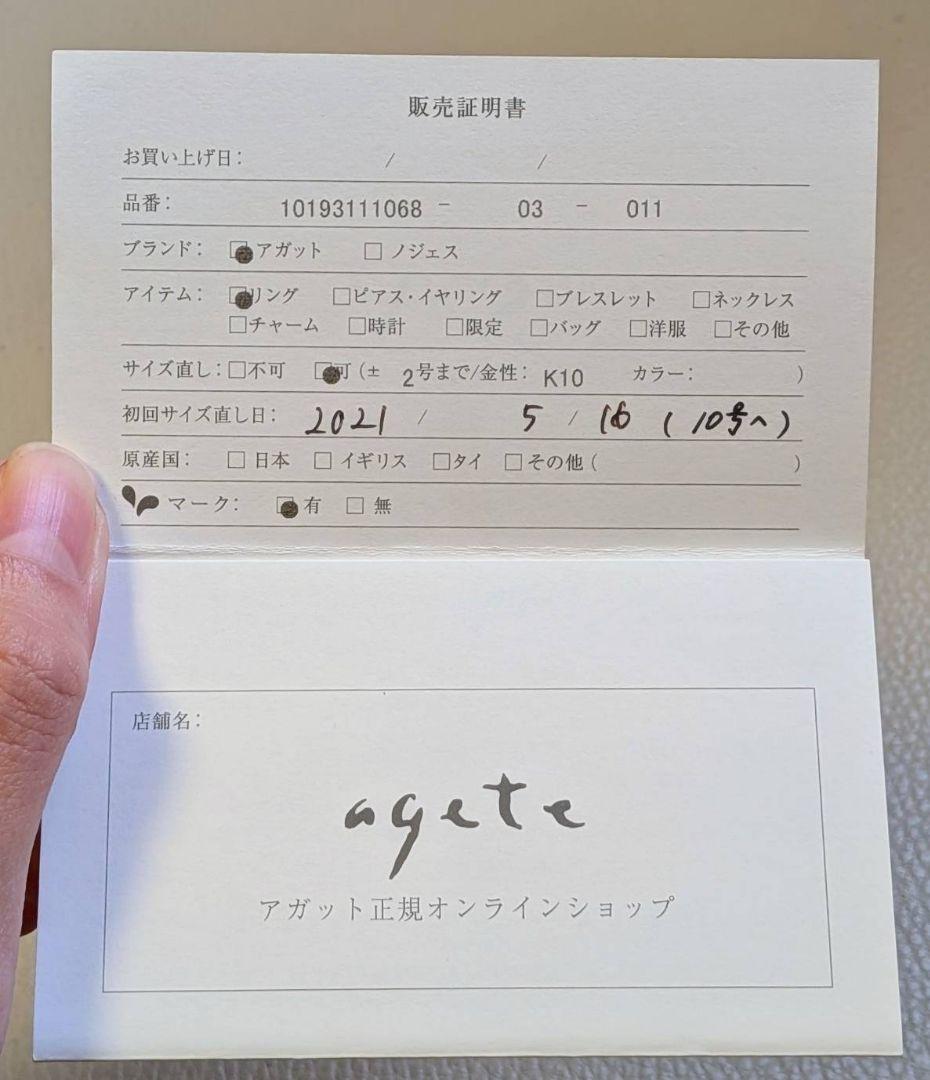 販売証明書
お買い上げ日： / /
品番： 10193111068 － 03 － 011
ブランド： □アガット □ノジェス
アイテム： □リング □ピアス・イヤリング □ブレスレット □ネックレス
□チャーム □時計 □限定 □バッグ □洋服 □その他
サイズ直し：□不可 □可（± 2号まで/金性： K10 カラー： ）
初回サイズ直し日： 2021 / 5 / 16 （10号へ）
原産国： □日本 □イギリス □タイ □その他（ ）
マーク： □有 □無
店舗名：
agete
アガット正規オンラインショップ